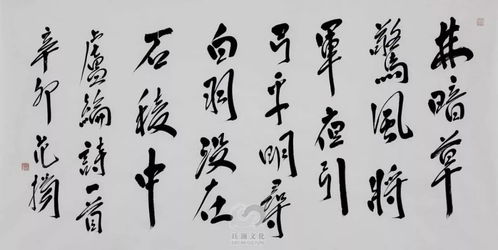 林暗草
驚風將
軍夜引
弓平明尋
白羽没在
石稜中
盧綸詩一首
辛卯范